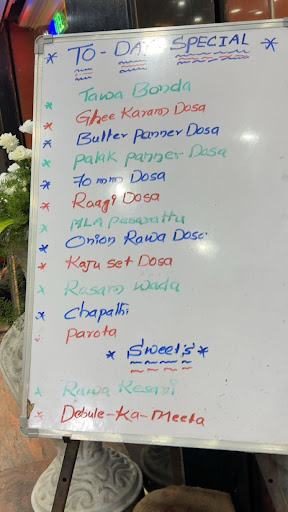 * TO-DAY SPECIAL *
* Tawa Bonda
* Ghee Karam Dosa
* Butter panner Dosa
* palak panner Dosa
* 70 mm Dosa
* Raagi Dosa
* MLA pasarattu
* Onion Rawa Dosa
* Kaju set Dosa
* Rasam Wada
* Chapathi
* parota
* Sweet's *
* Rawa Kesari
* Debule-Ka-Meeta